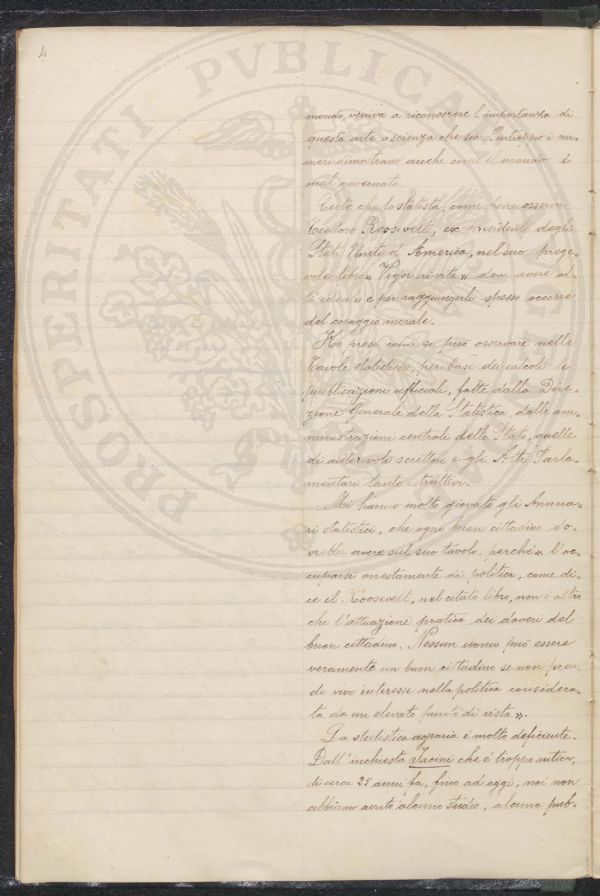 4
PROSPERITATI PVBLICAE
mondo, veniva a riconoscere l'importanza di
questa arte o scienza che sia. Purtroppo i nu-
meri dimostrano anche come il mondo è
mal governato.
Certo, che lo statista, come bene osserva
Teodoro Roosevelt, ex presidente degli
Stati Uniti d'America, nel suo prege-
vole libro « Vigor di vita » deve avere al-
ti ideali e per raggiungerli spesso occorre
del coraggio morale.
Ho preso, come si può osservare nelle
Tavole statistiche, per base dei calcoli le
pubblicazioni ufficiali, fatte dalla Dire-
zione Generale della Statistica, dalle am-
ministrazioni centrali dello Stato, quelle
di autorevoli scrittori e gli Atti Parla-
mentari tanto istruttivi.
Mi hanno molto giovato gli Annua-
ri statistici, che ogni buon cittadino do-
vrebbe avere sul suo tavolo, perché « l'oc-
cuparsi onestamente di politica, come di-
ce il Roosevelt, nel citato libro, non è altro
che l'attuazione pratica dei doveri del
buon cittadino. Nessun uomo può essere
veramente un buon cittadino se non pren-
de vivo interesse nella politica considera-
ta da un elevato punto di vista ».
La statistica agraria è molto deficiente.
Dall'inchiesta Jacini che è troppo antica,
di circa 25 anni fa, fino ad oggi, noi non
abbiamo avuto alcuno studio, alcuna pub-